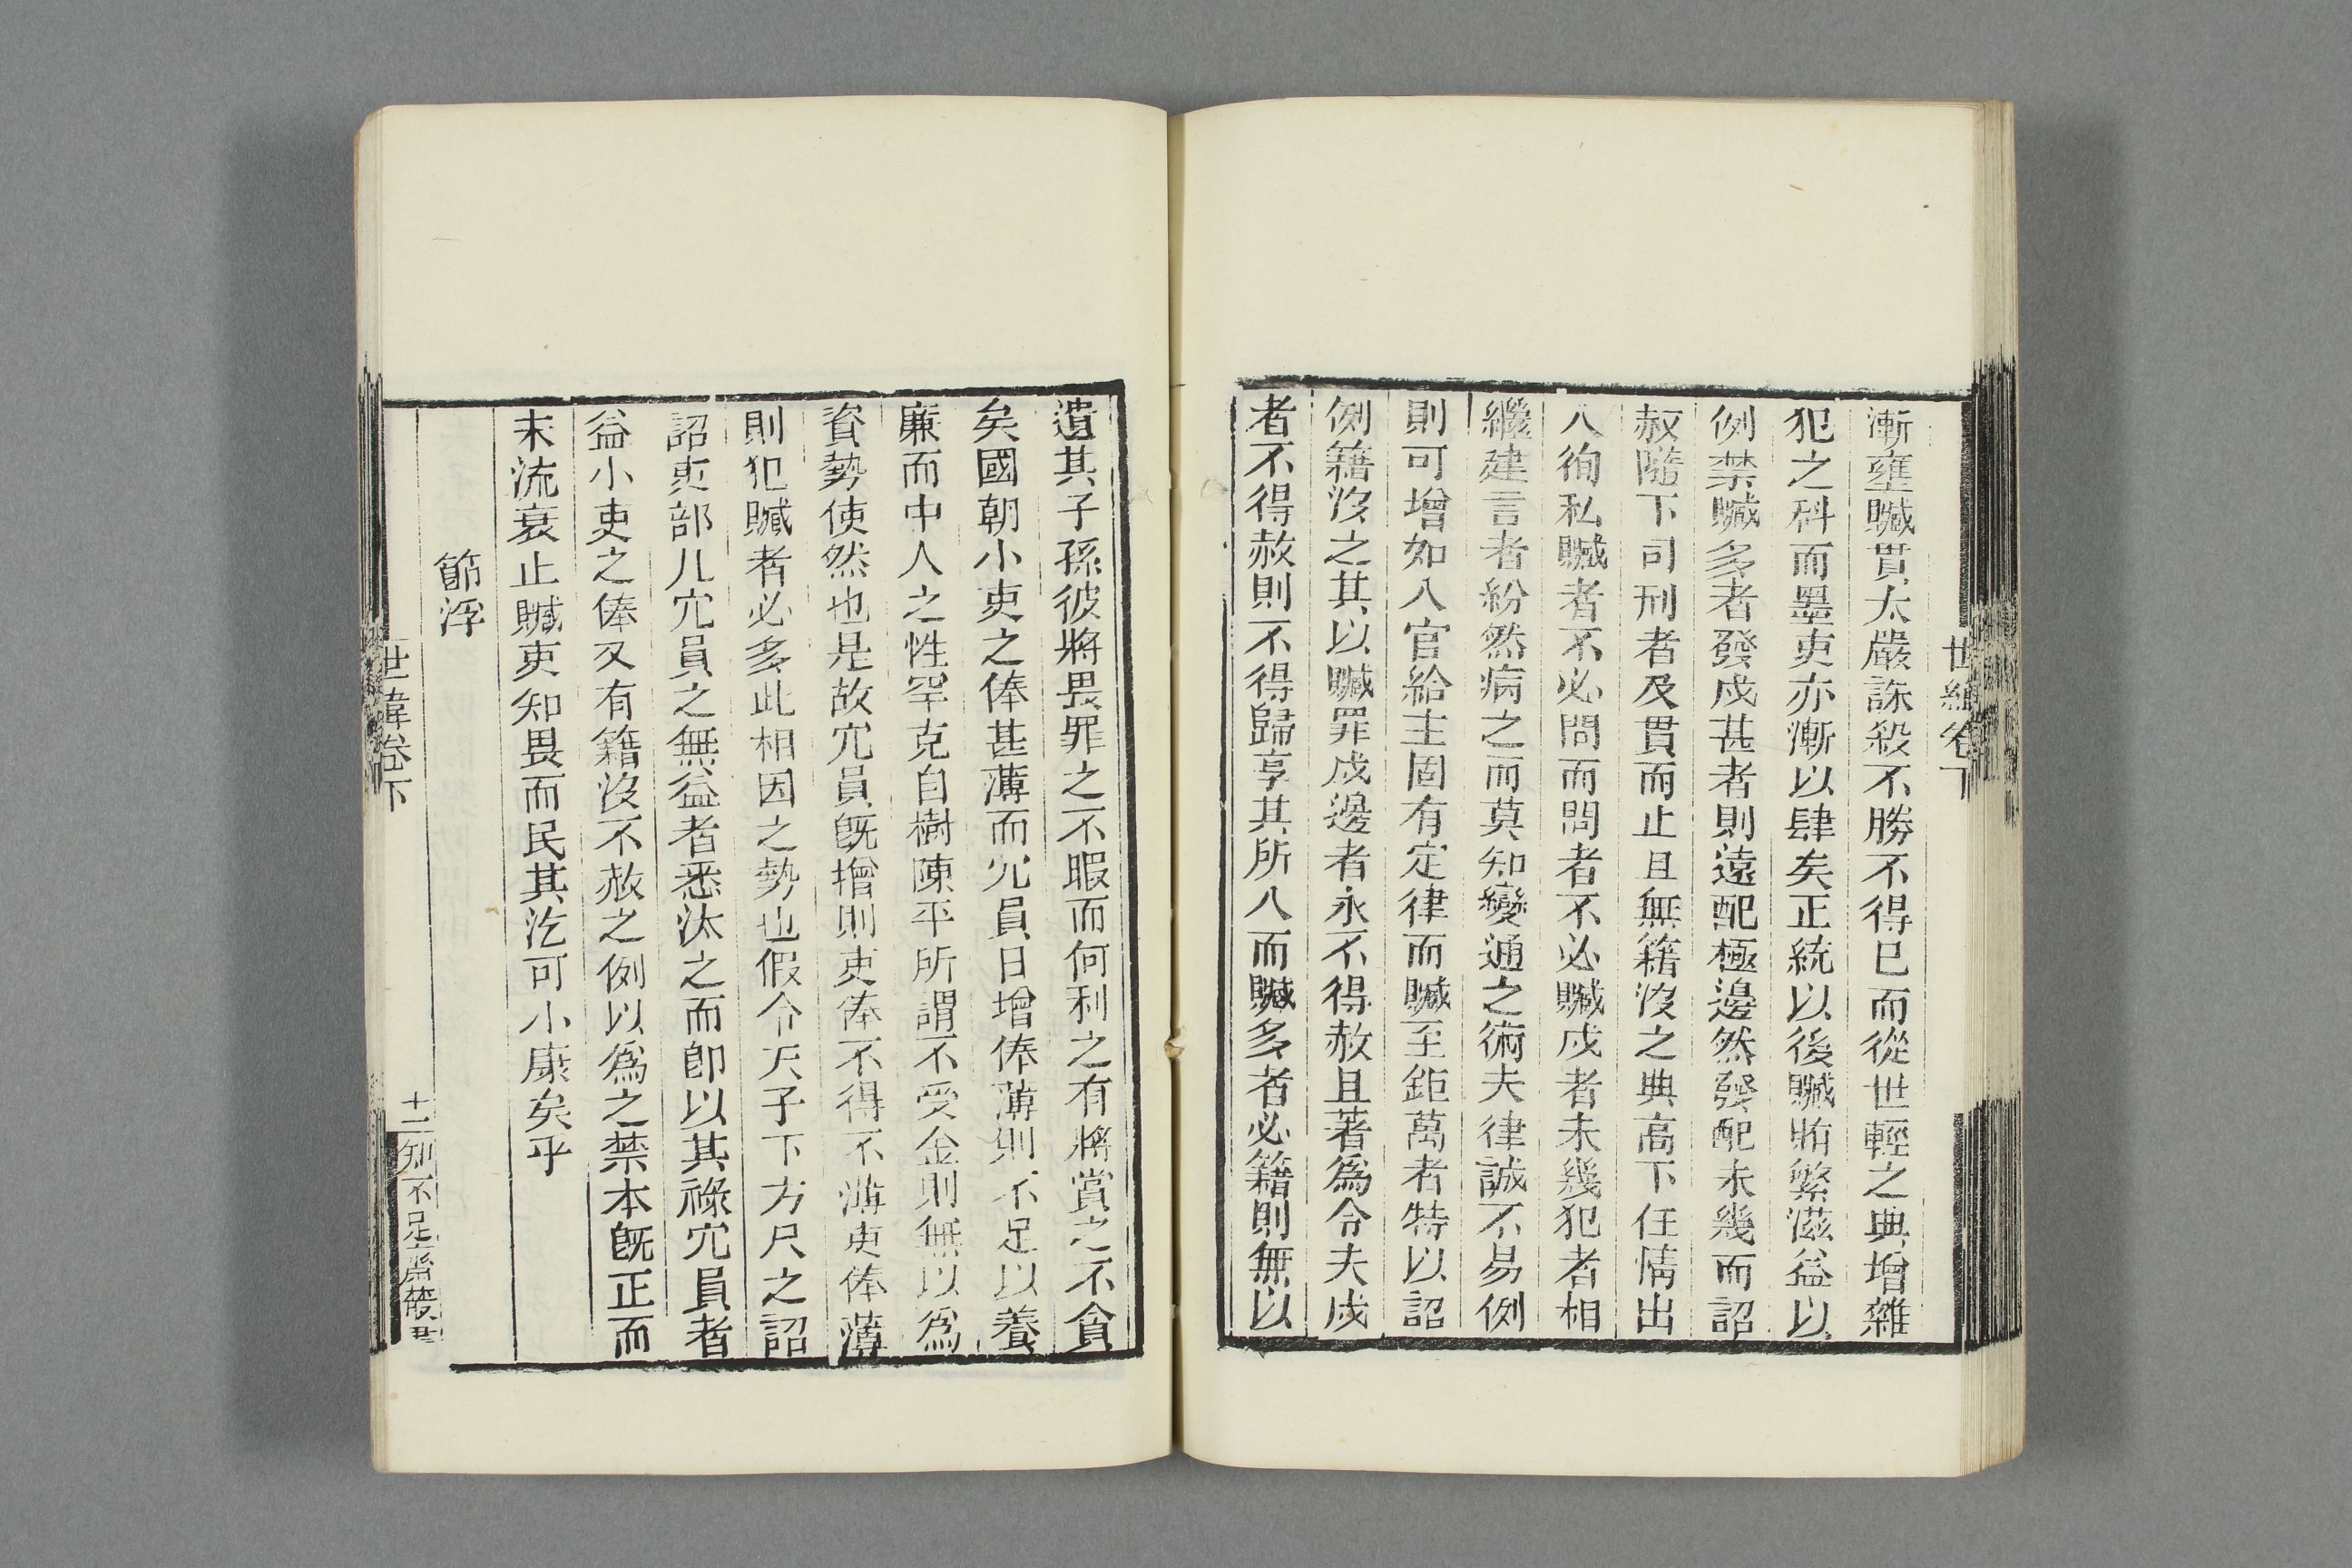 世緯卷下
漸壅贓貫太嚴誅殺不勝不得已而從世輕之典增雜
犯之科而墨吏亦漸以肆矣正統以後贓賄繁滋益以
例禁贓多者發戍甚者則遠配極邊然發配未幾而詔
赦隨下司刑者及貫而止且無籍沒之典高下任情出
入徇私贓者不必問而問者不必贓戍者未幾犯者相
繼建言者紛然病之而莫知變通之術夫律誠不易例
則可增如入官給主固有定律而贓至鉅萬者特以詔
例籍沒之其以贓罪戍邊者永不得赦且著為令夫戍
者不得赦則不得歸享其所入而贓多者必籍則無以
遺其子孫彼將畏罪之不暇而何利之有將賞之不貪
矣國朝小吏之俸甚薄而冗員日增俸薄則不足以養
廉而中人之性罕克自樹陳平所謂不受金則無以為
資勢使然也是故冗員既增則吏俸不得不薄吏俸薄
則犯贓者必多此相因之勢也假令天子下方尺之詔
詔吏部凡冗員之無益者悉汰之而即以其祿冗員者
益小吏之俸又有籍沒不赦之例以為之禁本既正而
末流衰止贓吏知畏而民其汔可小康矣乎
節浮
世緯卷下
十二
知不足齋叢書